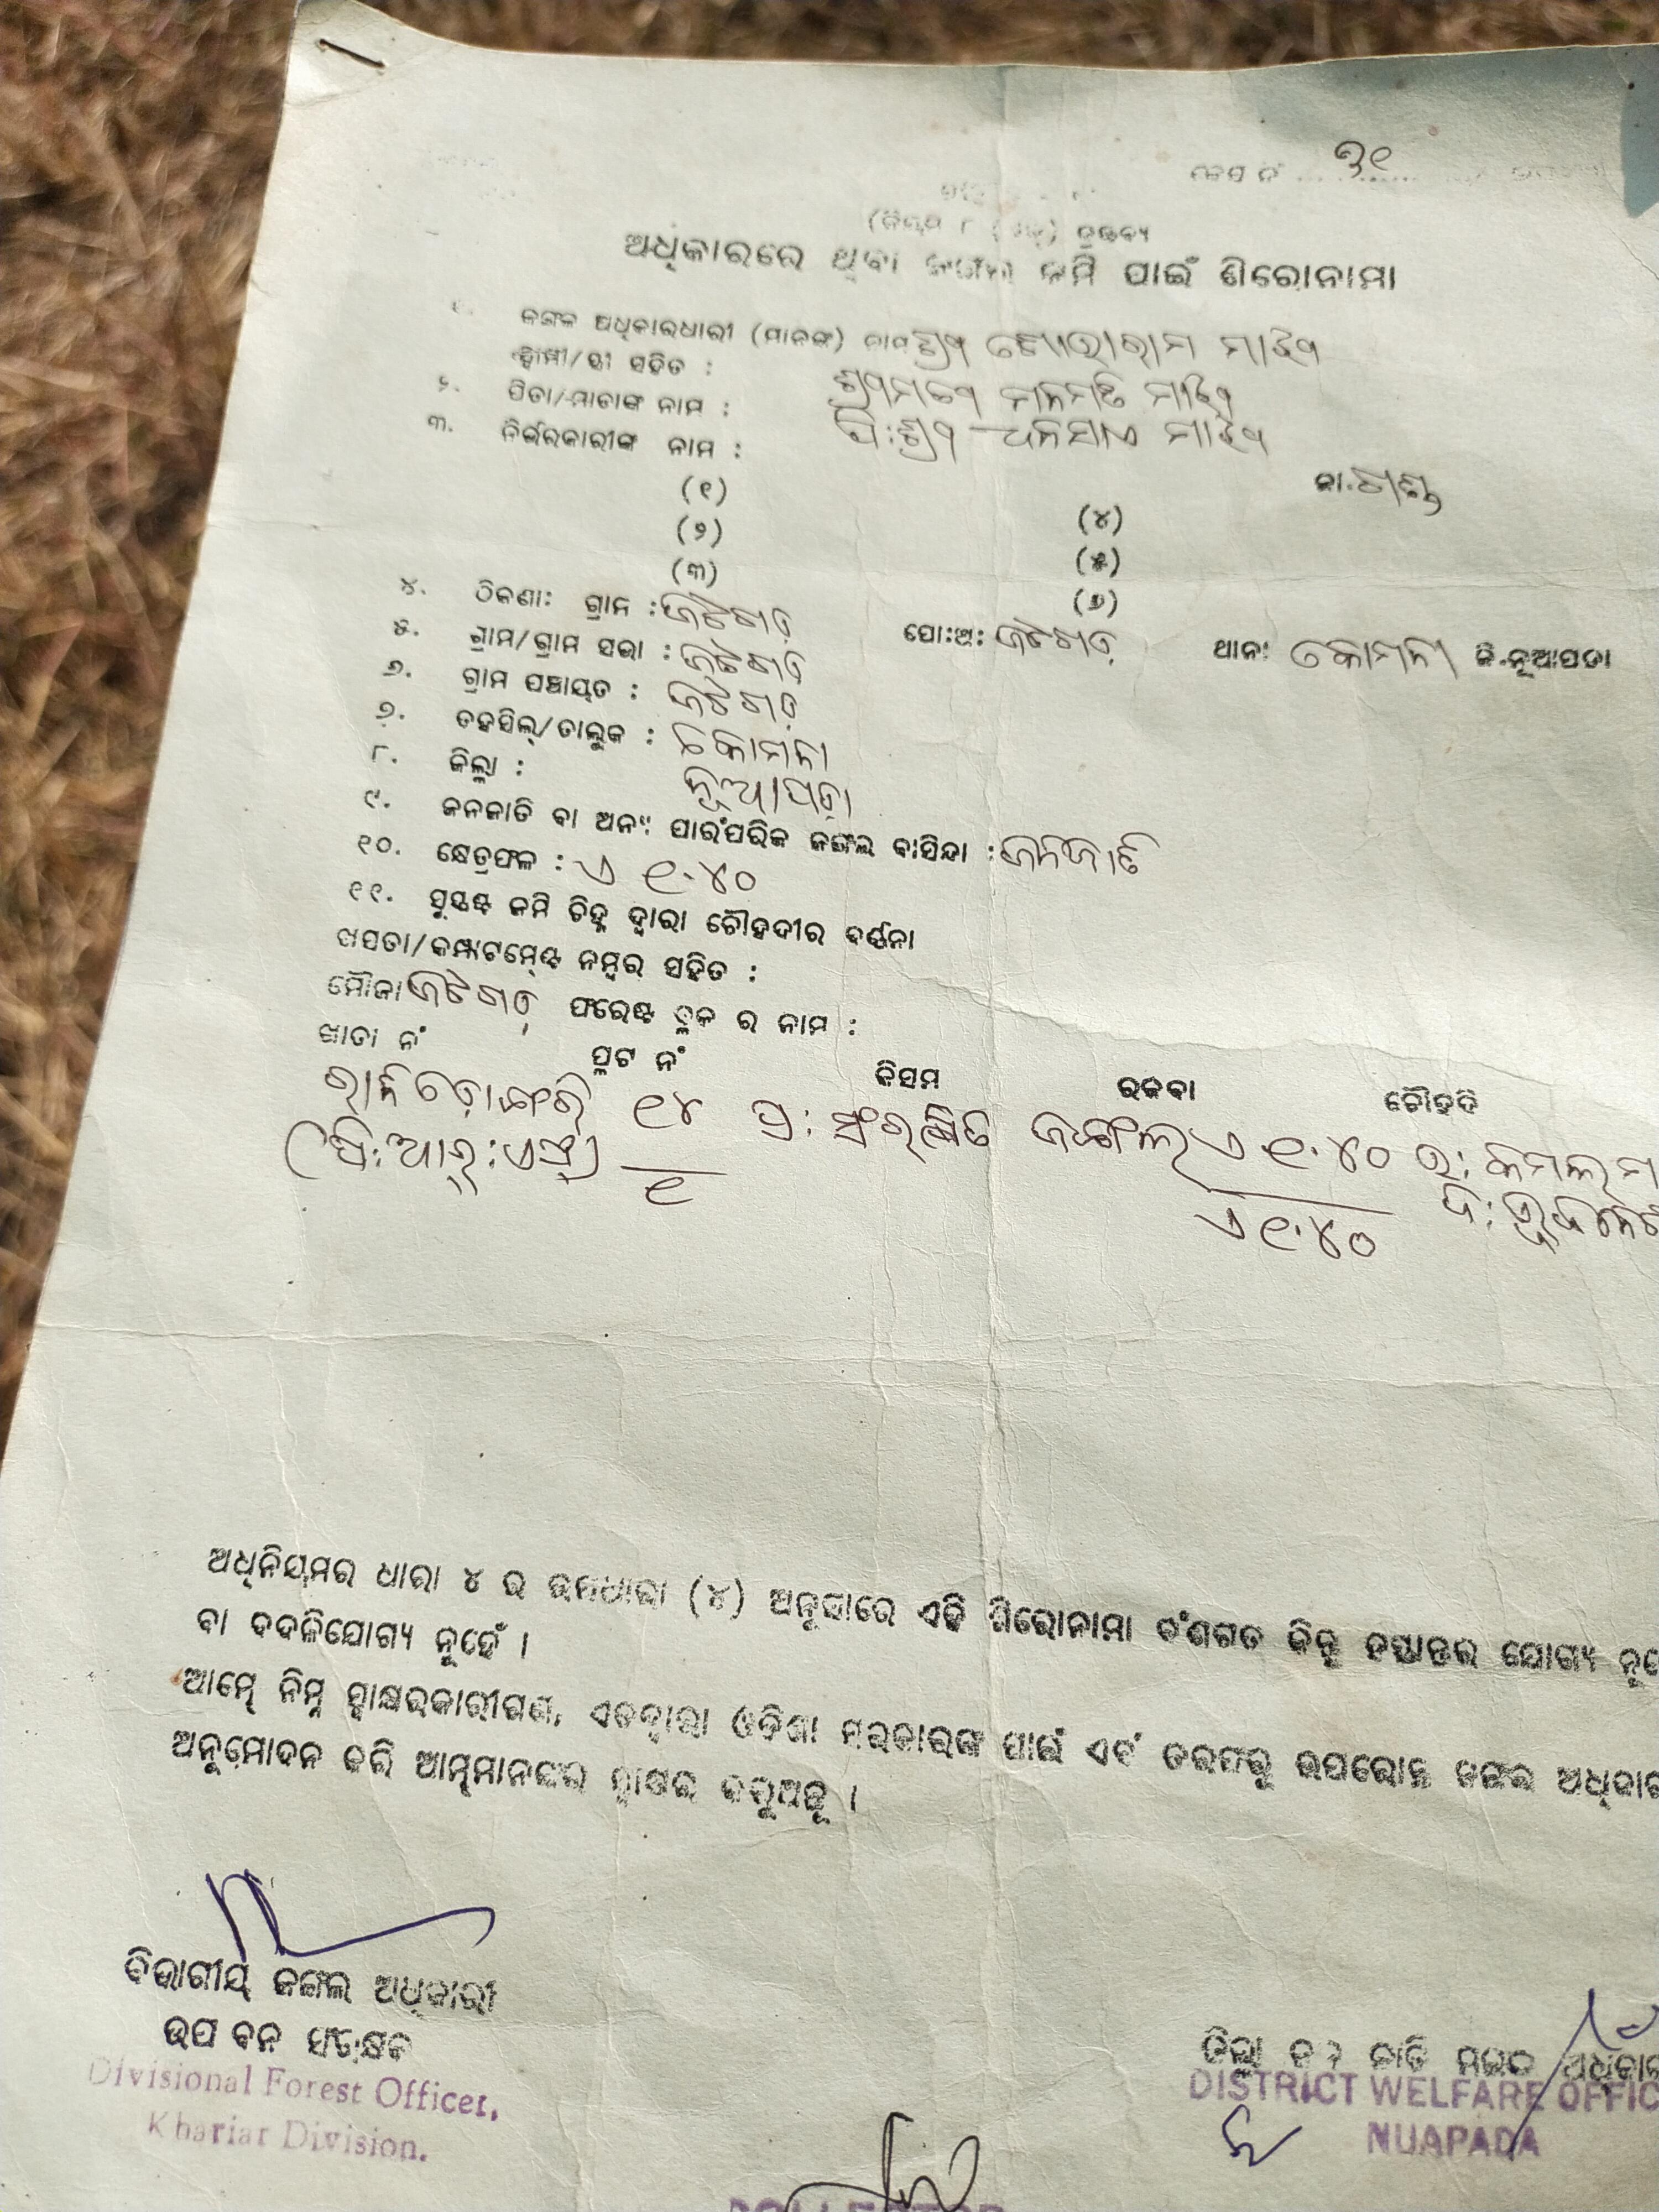 କେସ ନଂ ୩୧
(ନିୟମ ୮ ଦ୍ରଷ୍ଟବ୍ୟ
ଅଧିକାରରେ ଥିବା ଜଙ୍ଗଲ ଜମି ପାଇଁ ଶିରୋନାମା
ଜଙ୍ଗଲ ଅଧିକାରଧାରୀ (ମାନଙ୍କ) ନାମ ଶ୍ରୀ ମାଝୀ
ସ୍ୱାମୀ/ସ୍ତ୍ରୀ ସହିତ : ଶ୍ରୀମତୀ ମାଝୀ
୨. ପିତା/ମାତାଙ୍କ ନାମ : ପି:ଶ୍ରୀ ଧନସାଏ ମାଝୀ
୩. ନିର୍ଭରକାରୀଙ୍କ ନାମ : ଜା.
(୧) (୪)
(୨) (୫)
(୩) (୬)
୪. ଠିକଣା: ଗ୍ରାମ : ଜଟଗଡ଼ ପୋ:ଅ: ଜଟଗଡ଼ ଥାନା କୋମନା ଜି.ନୂଆପଡା
୫. ଗ୍ରାମ/ଗ୍ରାମ ସଭା : ଜଟଗଡ଼
୬. ଗ୍ରାମ ପଞ୍ଚାୟତ : ଜଟଗଡ଼
୭. ତହସିଲ୍/ତାଲୁକ : କୋମନା
୮. ଜିଲ୍ଲା : ନୂଆପଡ଼ା
୯. ଜନଜାତି ବା ଅନ୍ୟ ପାରଂପରିକ ଜଙ୍ଗଲ ବାସିନ୍ଦା : ଜନଜାତି
୧୦. କ୍ଷେତ୍ରଫଳ : ଏ ୧.୪୦
୧୧. ସୁସ୍ପଷ୍ଟ ଜମି ଚିହ୍ନ ଦ୍ୱାରା ଚୌହଦୀର ବର୍ଣ୍ଣନା
ଖସଡା/କମ୍ପାଟମେଣ୍ଟ ନମ୍ବର ସହିତ :
ମୌଜା ଜଟଗଡ଼ ଫରେଷ୍ଟ ବ୍ଲକ ର ନାମ :
ଖାତା ନଂ ପ୍ଲଟ ନଂ କିସମ ରକବା ଚୌହଦି
ରାନିଡୋଙ୍ଗରି ୧୪ ପ୍ର: ସଂରକ୍ଷିତ ଜଙ୍ଗଲ ଏ ୧.୪୦ ଉ:
(ପି:ଆର୍:ଏଫ୍) ୧ ଏ ୧.୪୦ ଦ:
ଅଧିନିୟମର ଧାରା ୪ ର ଉପଧାରା (୪) ଅନୁସାରେ ଏହି ଶିରୋନାମା ବଂଶଗତ କିନ୍ତୁ ହସ୍ତାନ୍ତର ଯୋଗ୍ୟ
ବା ବଦଳିଯୋଗ୍ୟ ନୁହେଁ ।
ଆମ୍ଭେ ନିମ୍ନ ସ୍ୱାକ୍ଷରକାରୀଗଣ, ଏତଦ୍ୱାରା ଓଡିଶା ସରକାରଙ୍କ ପାଇଁ ଏବଂ ତରଫରୁ ଉପରୋକ୍ତ ଜଙ୍ଗଲ
ଅନୁମୋଦନ କରି ଆମ୍ଭମାନଙ୍କର ସ୍ୱାକ୍ଷର କରୁଅଛୁ ।
ବିଭାଗୀୟ ଜଙ୍ଗଲ ଅଧିକାରୀ
ଉପ ବନ ସଂରକ୍ଷକ
Divisional Forest Officer,
Khariar Division.
ଜିଲ୍ଲା ଜାତି ମଙ୍ଗଳ
DISTRICT WELFARE OFFIC
NUAPADA
COLLECTOR